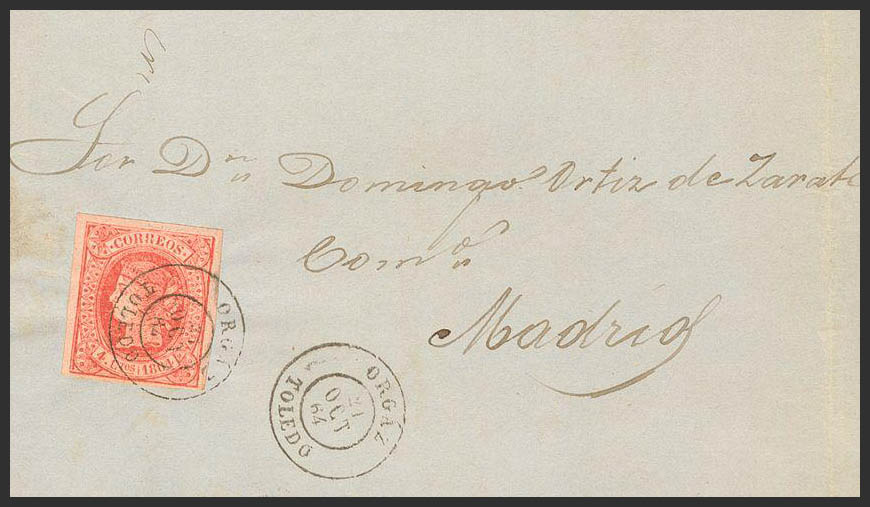 Sor Dn Domingo Ortiz de Zarate
Madrid
CORREOS
4 CTOS 1864
ORGAZ
TOLEDO
ORGAZ
21
OCT
64
TOLEDO